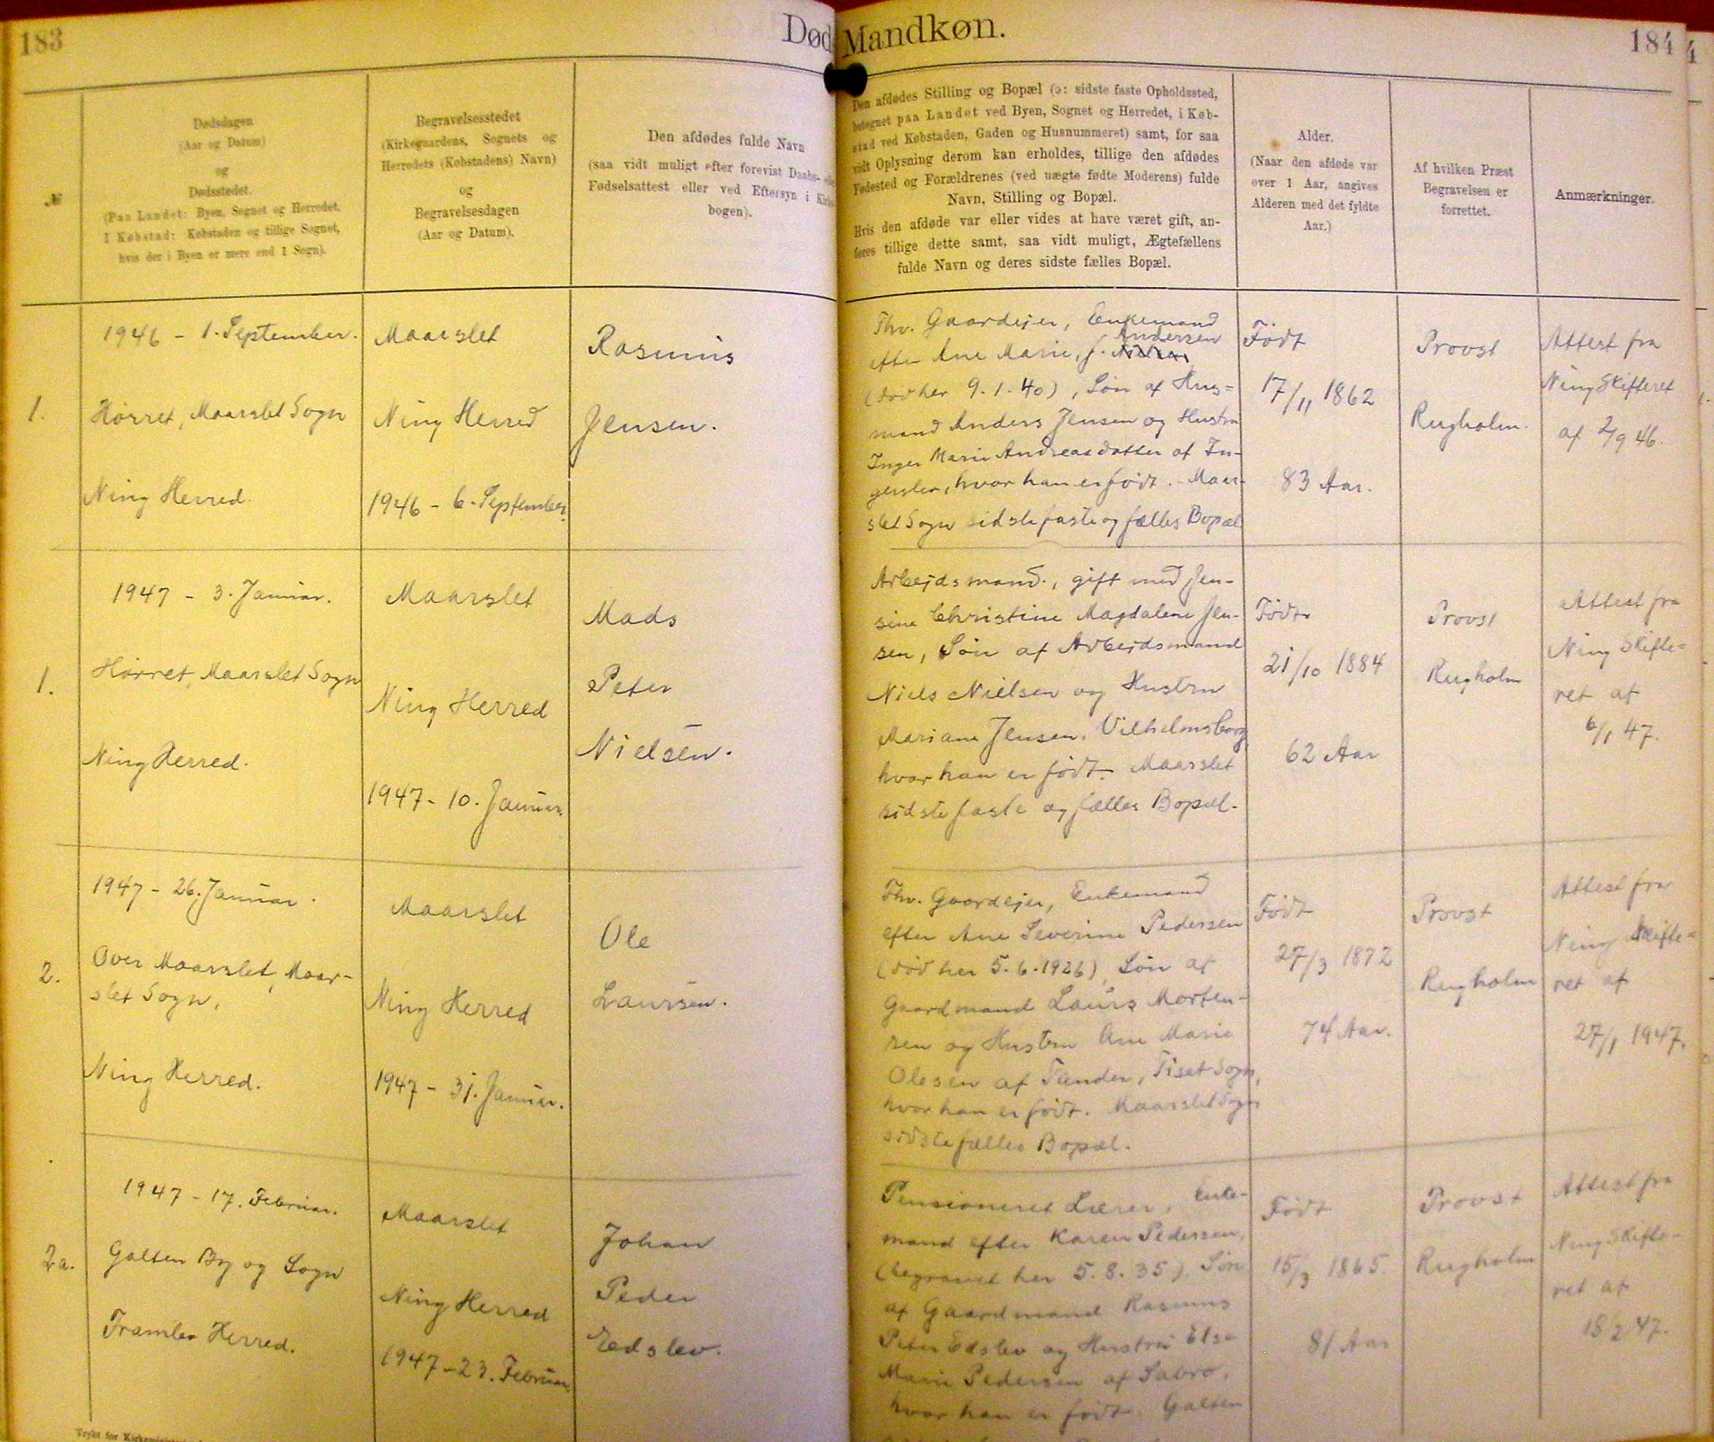 183
Død
Mandkøn.
184
№
Dødsdagen
(Aar og Datum)
og
Dødsstedet.
(Paa Landet: Byen, Sognet og Herredet.
I Købstad: Købstaden og tillige Sognet,
hvis der i Byen er mere end 1 Sogn).
Begravelsesstedet
(Kirkegaardens, Sognets og
Herredets (Købstadens) Navn)
og
Begravelsesdagen
(Aar og Datum).
Den afdødes fulde Navn
(saa vidt muligt efter forevist Daabs-
Fødselsattest eller ved Eftersyn i
bogen).
Den afdødes Stilling og Bopæl (ɔ: sidste faste Opholdssted,
betegnet paa Landet ved Byen, Sognet og Herredet, i Køb-
stad ved Købstaden, Gaden og Husnummeret) samt, for saa
vidt Oplysning derom kan erholdes, tillige den afdødes
Fødested og Forældrenes (ved uægte fødte Moderens) fulde
Navn, Stilling og Bopæl.
Hvis den afdøde var eller vides at have været gift, an-
føres tillige dette samt, saa vidt muligt, Ægtefællens
fulde Navn og deres sidste fælles Bopæl.
Alder.
(Naar den afdøde var
over 1 Aar, angives
Alderen med det fyldte
Aar.)
Af hvilken Præst
Begravelsen er
forrettet.
Anmærkninger.
1.
1946 - 1. September.
Hørret, Maarslet Sogn
Ning Herred.
Maarslet
Ning Herred
1946 - 6. September.
Rasmus
Jensen.
Fhv. Gaardejer, Enkemand
Andersen
efter Ane Marie, f.
(død her 9.1.40), Søn af Hus-
mand Anders Jensen og Hustru
Inger Marie Andreasdatter af In-
gerslev, hvor han er født. Maar-
slet Sogn sidste faste og fælles Bopæl
Født
17/11 1862
83 Aar.
Provst
Rugholm.
Attest fra
Ning Skifteret
af 2/9 46.
1.
1947 - 3. Januar.
Hørret, Maarslet Sogn
Ning Herred.
Maarslet
Ning Herred
1947 - 10. Januar
Mads
Peter
Nielsen.
Arbejdsmand., gift med Jen-
sine Christine Magdalene Jen-
sen, Søn af Arbejdsmand
Niels Nielsen og Hustru
Mariane Jensen. Vilhelmsborg
hvor han er født. Maarslet
sidste faste og fælles Bopæl.
Født
21/10 1884
62 Aar
Provst
Rugholm
Attest fra
Ning Skifte-
ret af
6/1 47.
2.
1947 - 26. Januar.
Over Maarslet, Maar-
slet Sogn,
Ning Herred.
Maarslet
Ning Herred
1947 - 31. Januar.
Ole
Laursen.
Fhv. Gaardejer, Enkemand
efter Ane Severine Pedersen
(død her 5.6.1926), Søn af
Gaardmand Laurs Morten-
sen og Hustru Ane Marie
Olesen af Tander, Tiset Sogn,
hvor han er født. Maarslet Sogn
sidste fælles Bopæl.
Født
27/3 1872
74 Aar.
Provst
Rugholm
Attest fra
Ning Skifte-
ret af
27/1 1947.
2a.
1947 - 17. Februar.
Galten By og Sogn
Framlev Herred.
Maarslet
Ning Herred
1947 - 23. Februar.
Johan
Peder
Edslev.
Pensioneret Lærer, Enke-
mand efter Karen Pedersen,
(begravet her 5.8.35), Søn
af Gaardmand Rasmus
Peter Edslev og Hustru Else
Marie Pedersen af Sabro,
hvor han er født. Galten
Født
15/3 1865.
81 Aar
Provst
Rugholm
Attest fra
Ning Skifte-
ret af
18/2 47.
Trykt for